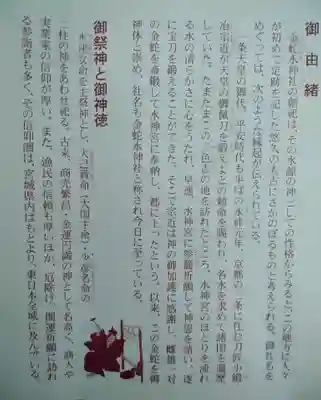 御由緒
金蛇水神社の創祀は、その水神の神としての性格からみると、この地方に人々
が初めて足跡を記した悠久の太古にさかのぼるものと考えられる。御社名を
めぐっては、次のような縁起が伝えられている。
一条天皇の御代、平安時代も半ばの永祚元年、京都の三条に住む刀匠小鍛
冶宗近が天皇の御佩刀を鍛えよとの勅命を賜わり、名水を求めて諸国を遍歴
していた。たまたまこの三色吉の地を訪れたところ、水神宮のほとりを流れ
る水の清らかさに心をうたれ、早速、水神宮に参籠祈願して神恩を請い、遂
に宝刀を鍛えることができた。そこで宗近は神の御加護に感謝し、雌雄一対
の金蛇を奉鍛して水神宮に奉納し、都に上ったという。以来、この金蛇を御
神体と崇め、社名も金蛇水神社と称され今日に至っている。
御祭神と御神徳
水速女命を主祭神とし、大己貴命(大国主命)・少彦名命の
二柱の神をあわせ祀る。古来、商売繁昌・金運円満の神として名高く、商人や
実業家の信仰が厚い。また、漁民の信頼も厚いほか、厄除け、開運祈願に訪れ
る参詣者も多く、その信仰圏は、宮城県内はもとより、東日本全域に及んでいる。